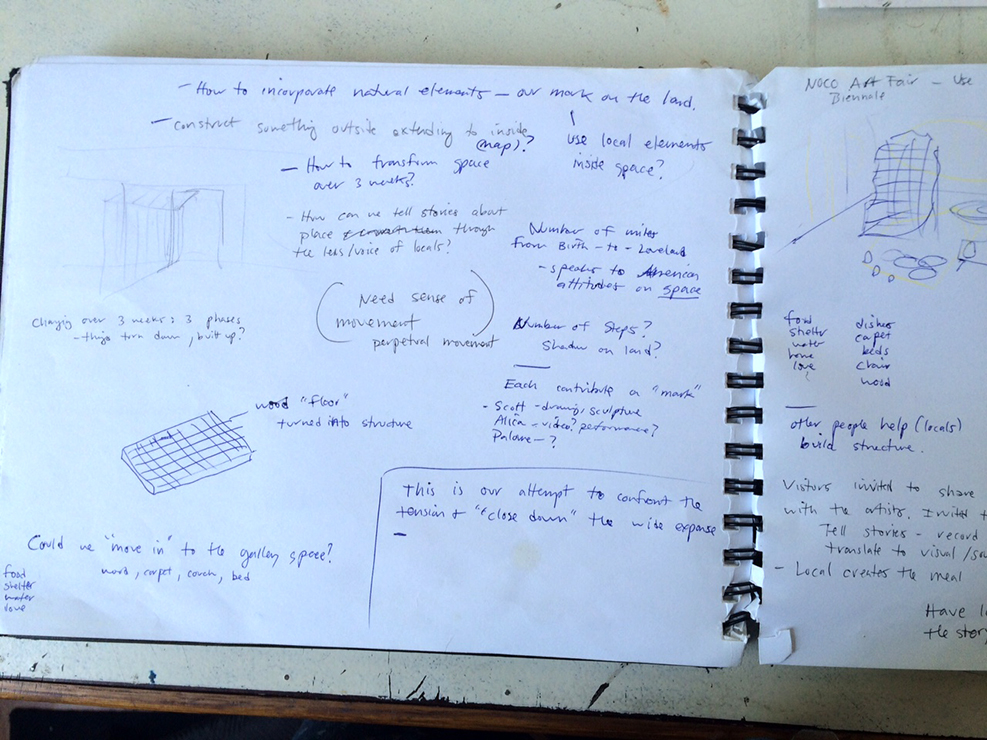 - How to incorporate natural elements - our mark on the land.
- construct something outside extending to inside (map)?
use local elements
inside space?
- How to transform space
over 3 weeks?
- How can we tell stories about
place through
the lens/voice of locals?
Number of miles
from Birth - to - Loveland
- speaks to American
attitudes on space
(Need sense of
movement)
perpetual movement
Changing over 3 weeks: 3 phases
- things torn down, built up?
Number of Steps?
Shadow on land?
Each contribute a "mark"
- Scott - drawing, sculpture
Alicia - video? performance?
- ?
wood "floor"
turned into structure
This is our attempt to confront the
tension & "close down" the wide expanse
-
Could we "move in" to the gallery space?
wood, carpet, couch, bed
food
shelter
water
love
NOCO Art Fair - Use
Biennale
food
shelter
water
home
love
dishes
carpet
beds
chair
wood
other people help (locals)
build structure.
Visitors invited to share
with the artists. Invited
Tell stories - record
translate to visual/
- Local creates the meal
Have
the story